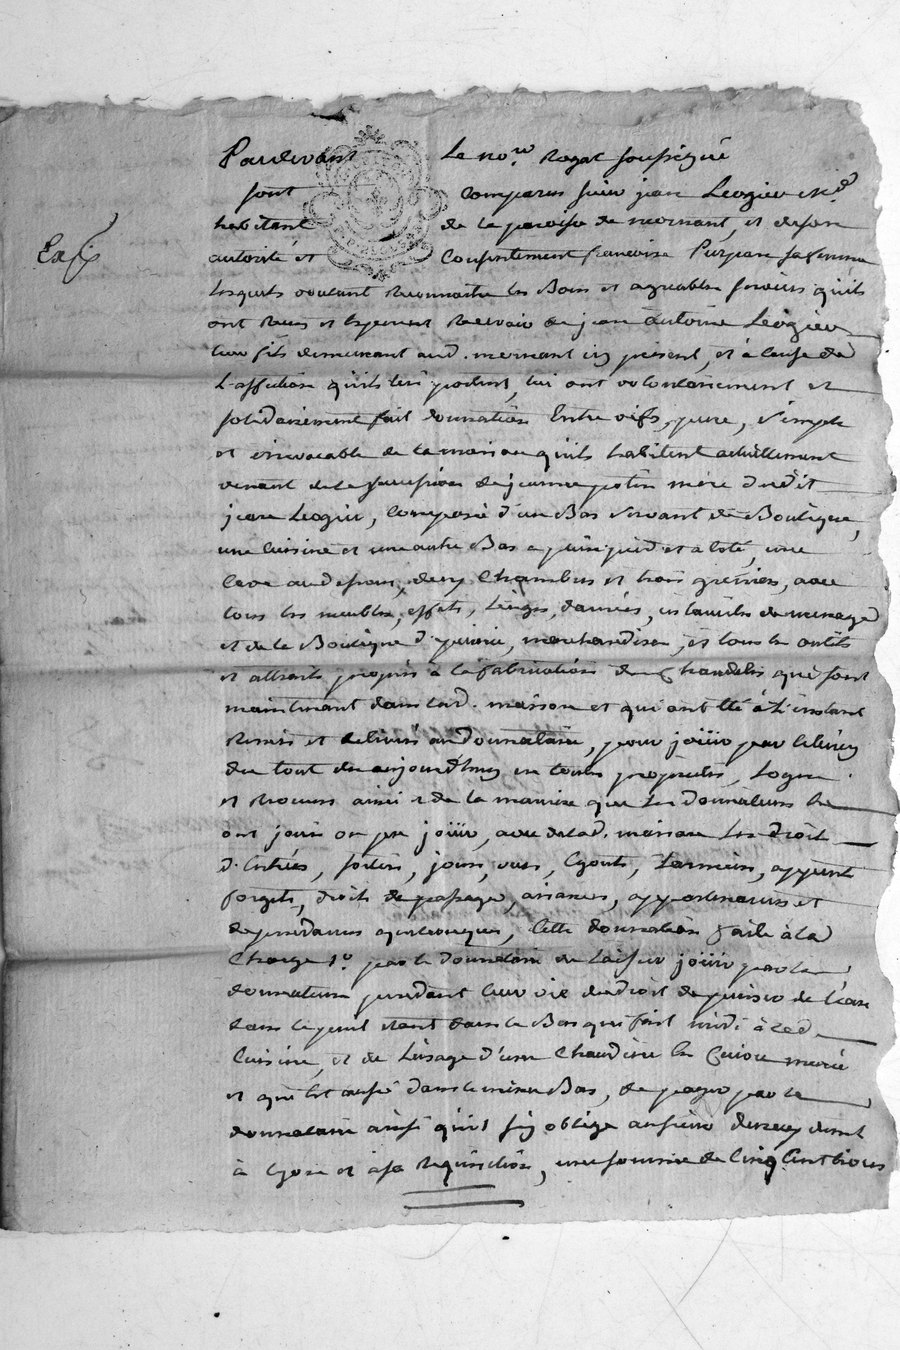 Pardevant Le no.re Royal soussigné
sont comparus sieur jean Leogier Md
habitant de la paroisse de mornant, et de son
Exp
autorité et Consentement francoise Purpan sa femme
lesquels voulant Reconnoitre les Bons et agreables services qu'ils
ont Reçus et Esperent Recevoir de jean Antoine Leogier
leur fils demeurant aud. mornant icy présent, et à Cause de
L'affection qu'ils lui portent, lui ont volontairement et
solidairement fait donnation Entre vifs, pure, simple
et irrevocable de la maison qu'ils habitent actuellement
venant de la succession de jeanne potin mère dudit
jean Leogier, Composée d'un Bas servant de Boutique,
une Cuisine et un autre Bas a puis pied et a Coté, une
Cave au dessous, deux Chambres et trois greniers, avec
tous les meubles, effets, Linges, danrées, ustanciles de menage
et de la Boutique d'epicerie, marchandises, et tous les outils
et attraits propres à la fabrication de Chandelles qui sont
maintenant dans lad. maison et qui ont été à L'instant
Remis et delivrés au donnataire, pour joüir par celui cy
du tout dès aujourd'huy en toute propriété,
et de la maniere que Les donnateurs
ont joui ou pu joüir, avec de lad. maison Les droits
d'Entrées, sorties, jours, vues, Egouts, Larmiers, appent
forgets, droits de passage, aisances, appartenances et
dependances quelconques, Cette donnation faite à la
Charge 1.º par le Donnataire de Laisser joüir par les
donnateurs pendant leur vie du droit de puiser de l'eau
dans le puit etant dans le Bas qui fait midi à lad.
Cuisine, et de L'usage d'une Chaudière En Cuivre murée
et qui Est aussi dans le même Bas, de payer par le
donnataire ainsi qu'il s'y oblige au sieur demeurant
à Lyon et à sa Requisition, une somme de Cinq Cent livres